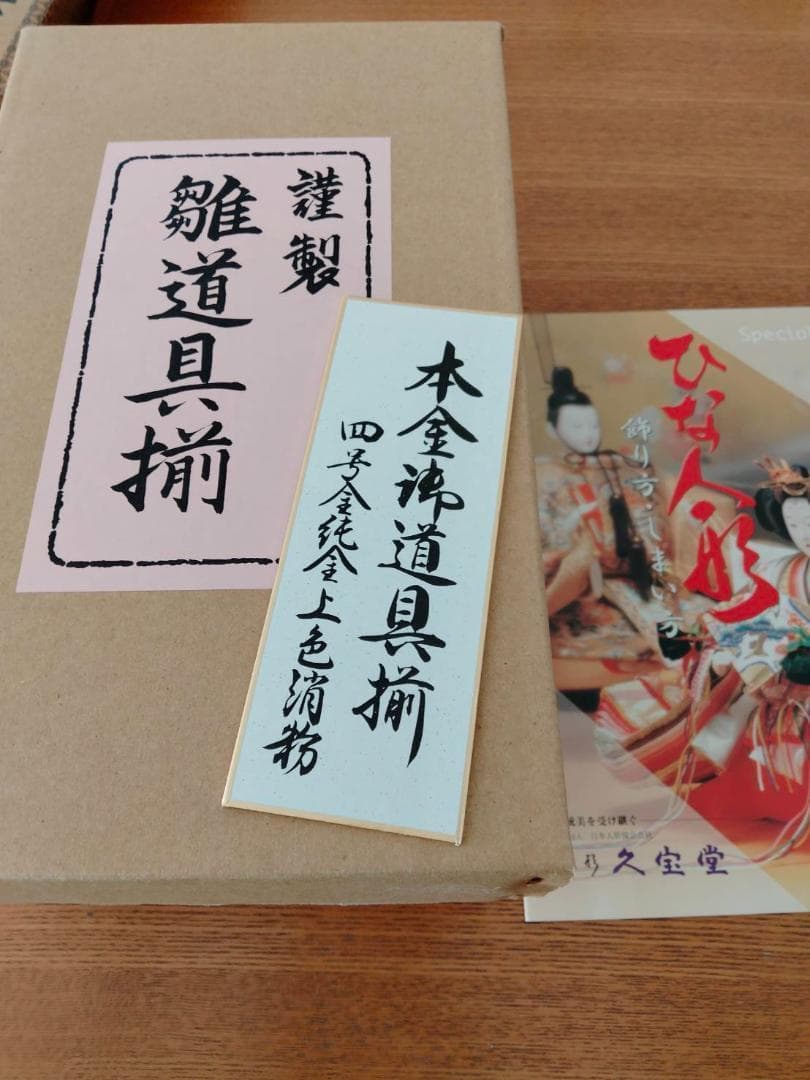 謹製
雛道具揃
本金御道具揃
四号金純金上色消粉
Specia
ひな人形
飾り方・しまい方
美を受け継ぐ
久宝堂